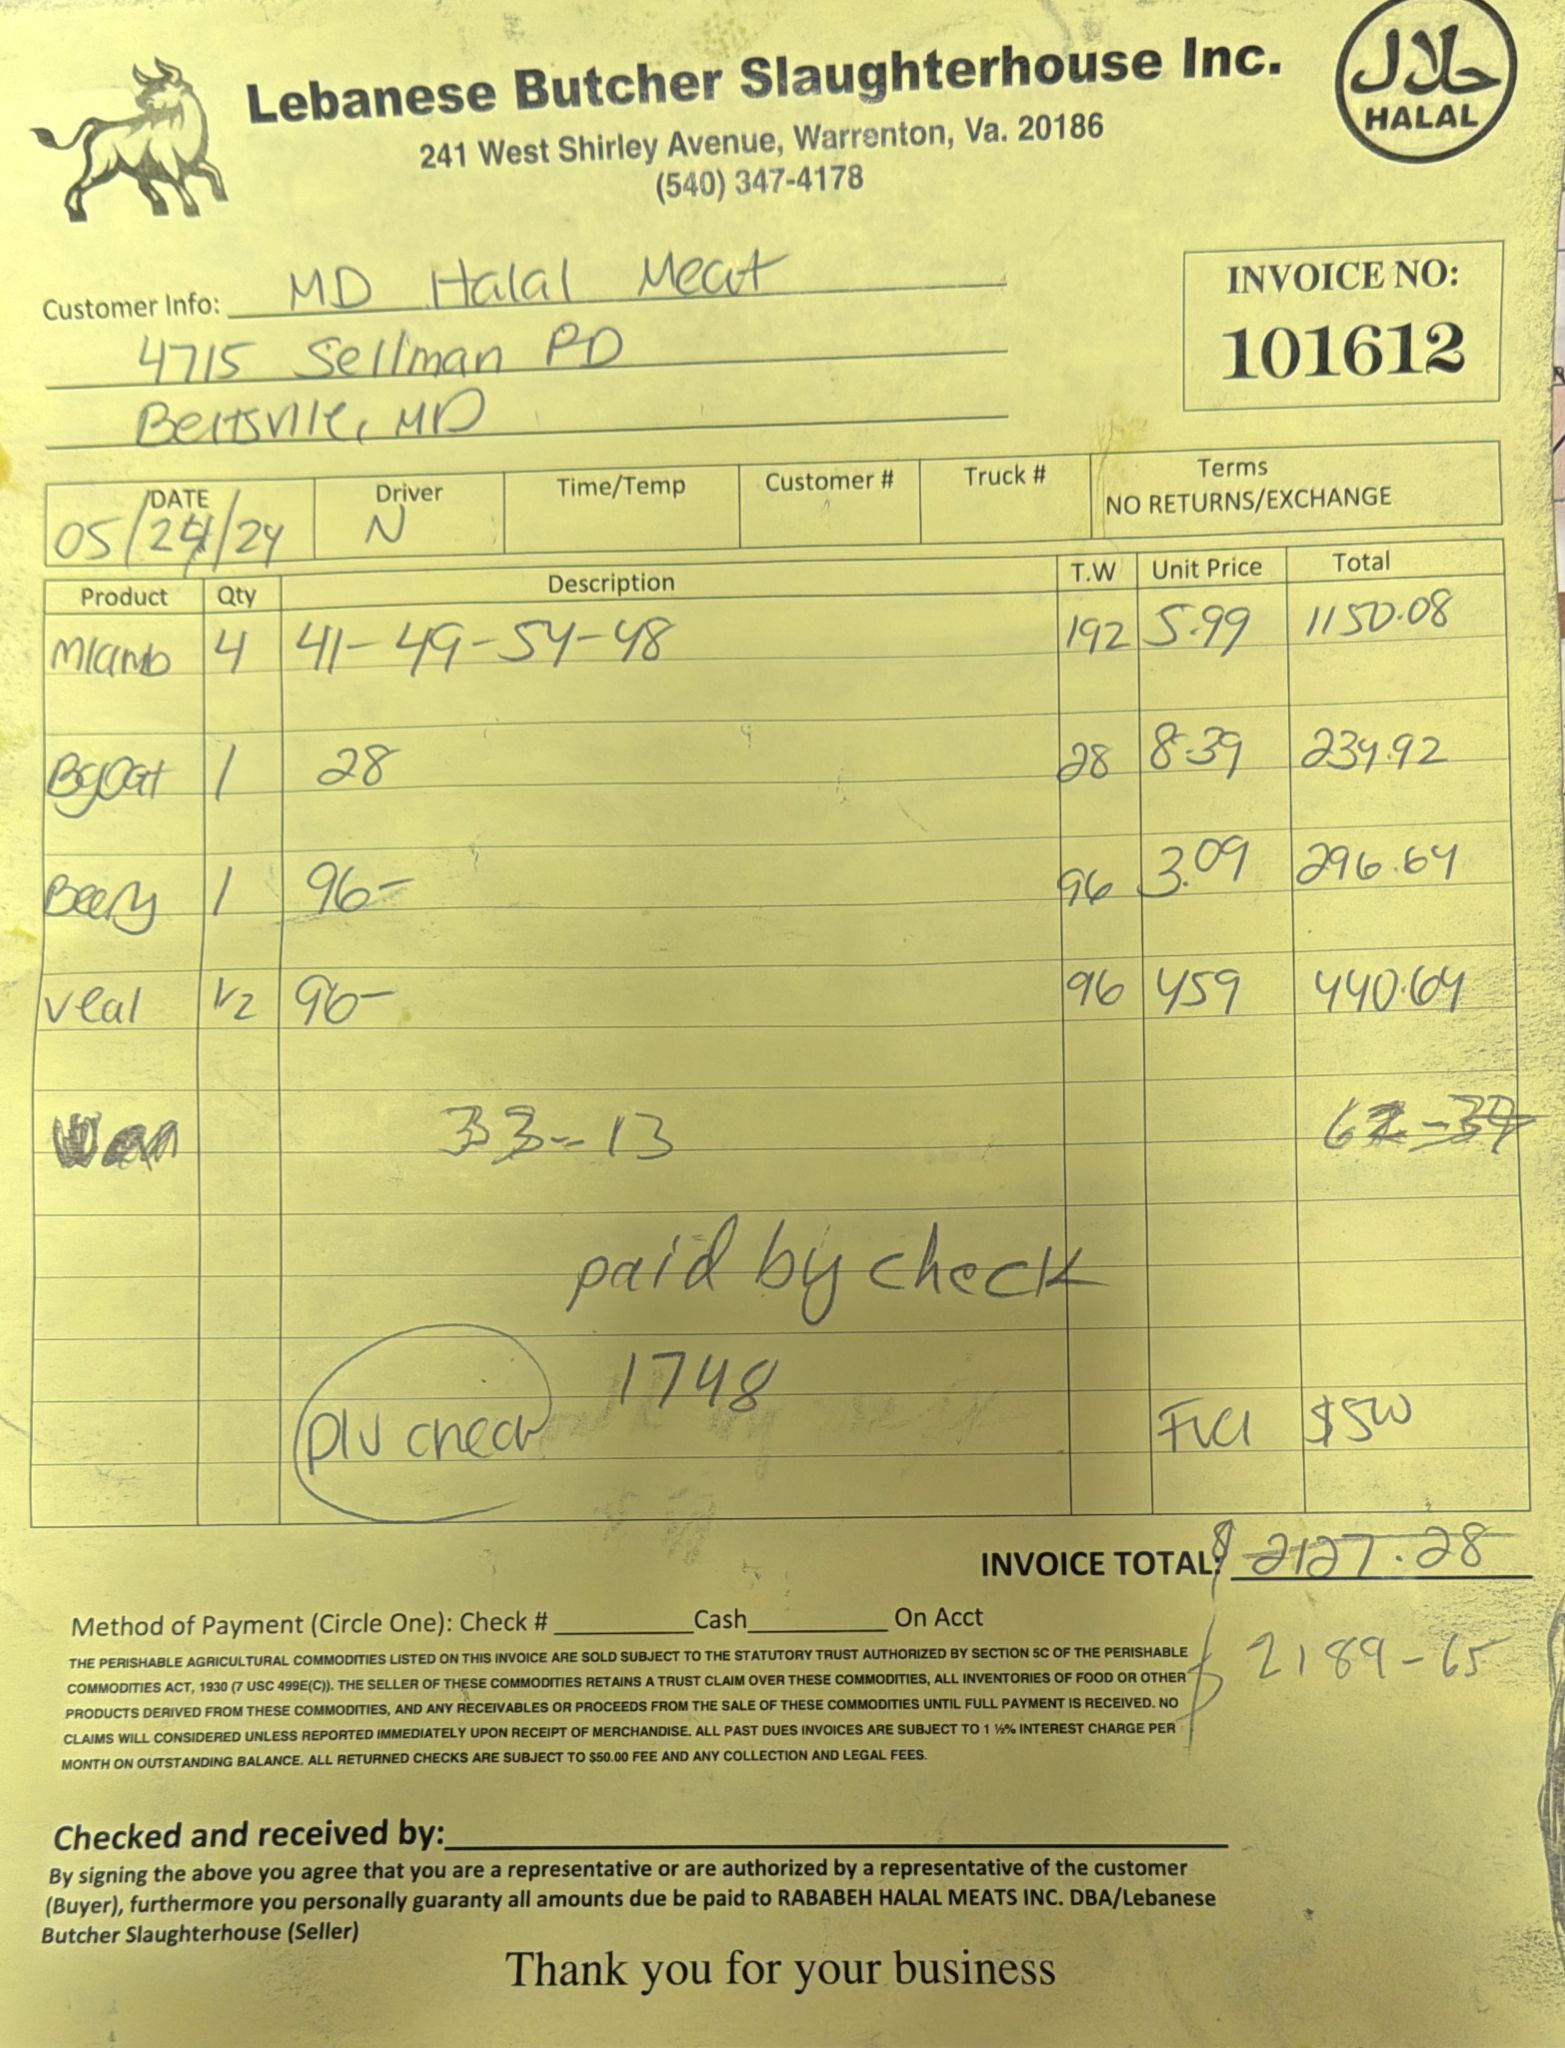 Lebanese Butcher Slaughterhouse Inc.
حلال
HALAL
241 West Shirley Avenue, Warrenton, Va. 20186
(540) 347-4178
Customer Info: MD Halal Meat
4715 Sellman RD
Beltsville, MD
INVOICE NO:
101612
DATE Driver Time/Temp Customer # Truck # Terms
05/24/24 N NO RETURNS/EXCHANGE
Product Qty Description T.W Unit Price Total
Mlamb 4 41-49-54-48 192 5.99 1150.08
Bgoat 1 28 28 8.39 234.92
1 96- 96 3.09 296.64
Veal 1/2 96- 96 459 440.64
33-13
paid by check
1748
check
$500
INVOICE TOTAL: $ 2127.28
$ 2189-65
Method of Payment (Circle One): Check # Cash On Acct
THE PERISHABLE AGRICULTURAL COMMODITIES LISTED ON THIS INVOICE ARE SOLD SUBJECT TO THE STATUTORY TRUST AUTHORIZED BY SECTION 5C OF THE PERISHABLE
COMMODITIES ACT, 1930 (7 USC 499E(C)). THE SELLER OF THESE COMMODITIES RETAINS A TRUST CLAIM OVER THESE COMMODITIES, ALL INVENTORIES OF FOOD OR OTHER
PRODUCTS DERIVED FROM THESE COMMODITIES, AND ANY RECEIVABLES OR PROCEEDS FROM THE SALE OF THESE COMMODITIES UNTIL FULL PAYMENT IS RECEIVED. NO
CLAIMS WILL CONSIDERED UNLESS REPORTED IMMEDIATELY UPON RECEIPT OF MERCHANDISE. ALL PAST DUES INVOICES ARE SUBJECT TO 1 ½% INTEREST CHARGE PER
MONTH ON OUTSTANDING BALANCE. ALL RETURNED CHECKS ARE SUBJECT TO $50.00 FEE AND ANY COLLECTION AND LEGAL FEES.
Checked and received by:
By signing the above you agree that you are a representative or are authorized by a representative of the customer
(Buyer), furthermore you personally guaranty all amounts due be paid to RABABEH HALAL MEATS INC. DBA/Lebanese
Butcher Slaughterhouse (Seller)
Thank you for your business